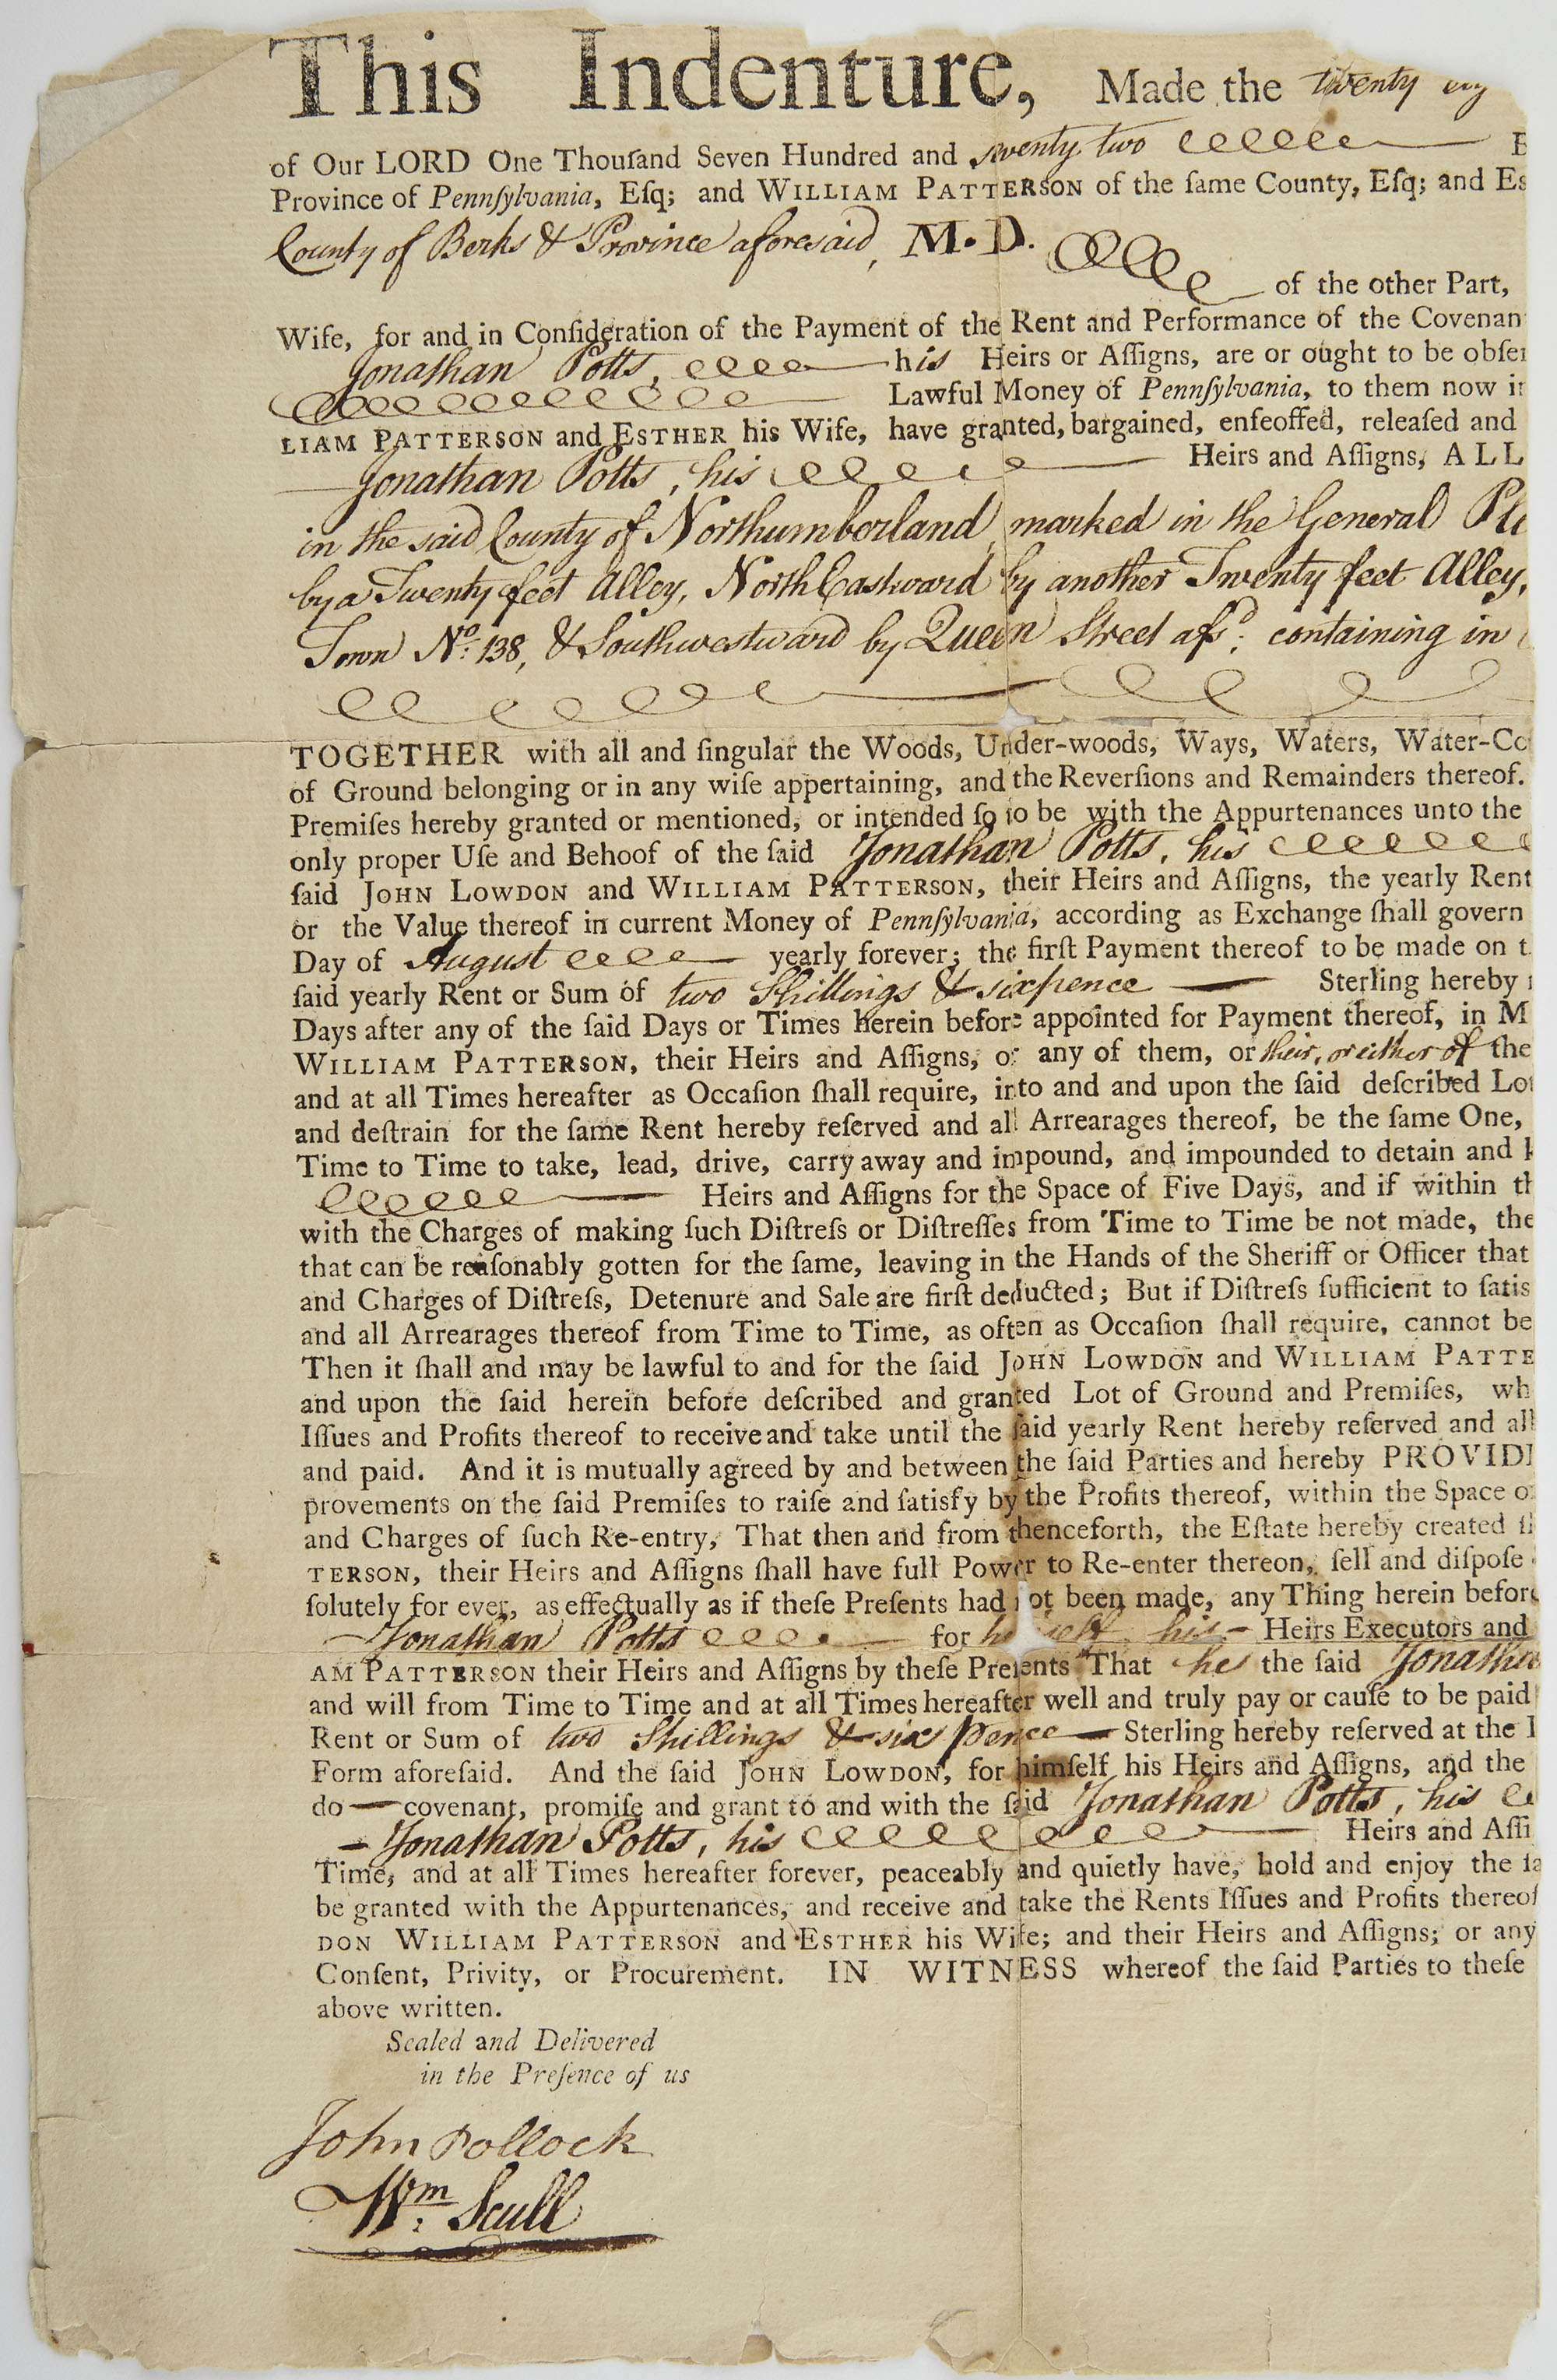 This Indenture, Made the twenty eig
of Our LORD One Thouſand Seven Hundred and seventy two
Province of Pennſylvania, Eſq; and WILLIAM PATTERSON of the ſame County, Eſq; and Es
County of Berks & Province aforesaid, M.D.
of the other Part,
Wife, for and in Conſideration of the Payment of the Rent and Performance of the Covenan
Jonathan Potts, his Heirs or Aſſigns, are or ought to be obſer
Lawful Money of Pennſylvania, to them now in
LIAM PATTERSON and ESTHER his Wife, have granted, bargained, enfeoffed, releaſed and
Jonathan Potts, his Heirs and Aſſigns, ALL
in the said County of Northumberland, marked in the General Pl
by a Twenty feet Alley, North Eastward by another Twenty feet Alley,
Town No. 138, & Southwestward by Queen Street afsd. containing in
TOGETHER with all and ſingular the Woods, Under-woods, Ways, Waters, Water-Co
of Ground belonging or in any wiſe appertaining, and the Reverſions and Remainders thereof.
Premiſes hereby granted or mentioned, or intended ſo to be with the Appurtenances unto the
only proper Uſe and Behoof of the ſaid Jonathan Potts, his
ſaid JOHN LOWDON and WILLIAM PATTERSON, their Heirs and Aſſigns, the yearly Rent
or the Value thereof in current Money of Pennſylvania, according as Exchange ſhall govern
Day of August yearly forever; the firſt Payment thereof to be made on t
ſaid yearly Rent or Sum of two Shillings & sixpence Sterling hereby
Days after any of the ſaid Days or Times herein before appointed for Payment thereof, in M
WILLIAM PATTERSON, their Heirs and Aſſigns, or any of them, or their, or either of the
and at all Times hereafter as Occaſion ſhall require, into and and upon the ſaid deſcribed Lot
and deſtrain for the ſame Rent hereby reſerved and all Arrearages thereof, be the ſame One,
Time to Time to take, lead, drive, carry away and impound, and impounded to detain and k
Heirs and Aſſigns for the Space of Five Days, and if within th
with the Charges of making ſuch Diſtreſs or Diſtreſſes from Time to Time be not made, the
that can be reaſonably gotten for the ſame, leaving in the Hands of the Sheriff or Officer that
and Charges of Diſtreſs, Detenure and Sale are firſt deducted; But if Diſtreſs ſufficient to ſatis
and all Arrearages thereof from Time to Time, as often as Occaſion ſhall require, cannot be
Then it ſhall and may be lawful to and for the ſaid JOHN LOWDON and WILLIAM PATTE
and upon the ſaid herein before deſcribed and granted Lot of Ground and Premiſes, wh
Iſſues and Profits thereof to receive and take until the ſaid yearly Rent hereby reſerved and all
and paid. And it is mutually agreed by and between the ſaid Parties and hereby PROVIDE
provements on the ſaid Premiſes to raiſe and ſatisfy by the Profits thereof, within the Space o
and Charges of ſuch Re-entry, That then and from thenceforth, the Eſtate hereby created ſh
TERSON, their Heirs and Aſſigns ſhall have full Power to Re-enter thereon, ſell and diſpoſe
ſolutely for ever, as effectually as if theſe Preſents had not been made, any Thing herein before
Jonathan Potts for himself his Heirs Executors and
AM PATTERSON their Heirs and Aſſigns by theſe Preſents That he the ſaid Jonathan
and will from Time to Time and at all Times hereafter well and truly pay or cauſe to be paid
Rent or Sum of two Shillings & six pence Sterling hereby reſerved at the
Form aforeſaid. And the ſaid JOHN LOWDON, for himſelf his Heirs and Aſſigns, and the
do covenant, promiſe and grant to and with the ſaid Jonathan Potts, his
Jonathan Potts, his Heirs and Aſſi
Time, and at all Times hereafter forever, peaceably and quietly have, hold and enjoy the ſa
be granted with the Appurtenances, and receive and take the Rents Iſſues and Profits thereof
DON WILLIAM PATTERSON and ESTHER his Wife; and their Heirs and Aſſigns; or any
Conſent, Privity, or Procurement. IN WITNESS whereof the ſaid Parties to theſe
above written.
Sealed and Delivered
in the Preſence of us
John Pollock
Wm. Scull